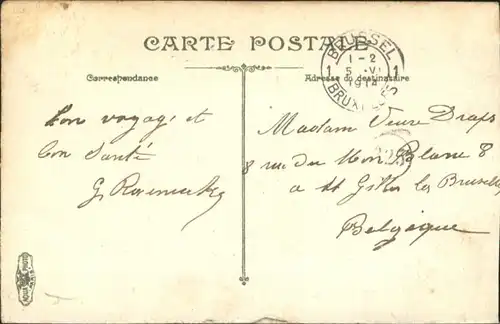 CARTE POSTALE
Correspondance
Adresse du destinataire
BRUSSEL
1-2
1 5 VI 1
1914
BRUXELLES
Bon voyage et
bon Santé
Madame Veuve Draps
8 rue du Mon Blanc 8
a St Gilles les Bruxelles
Belgique